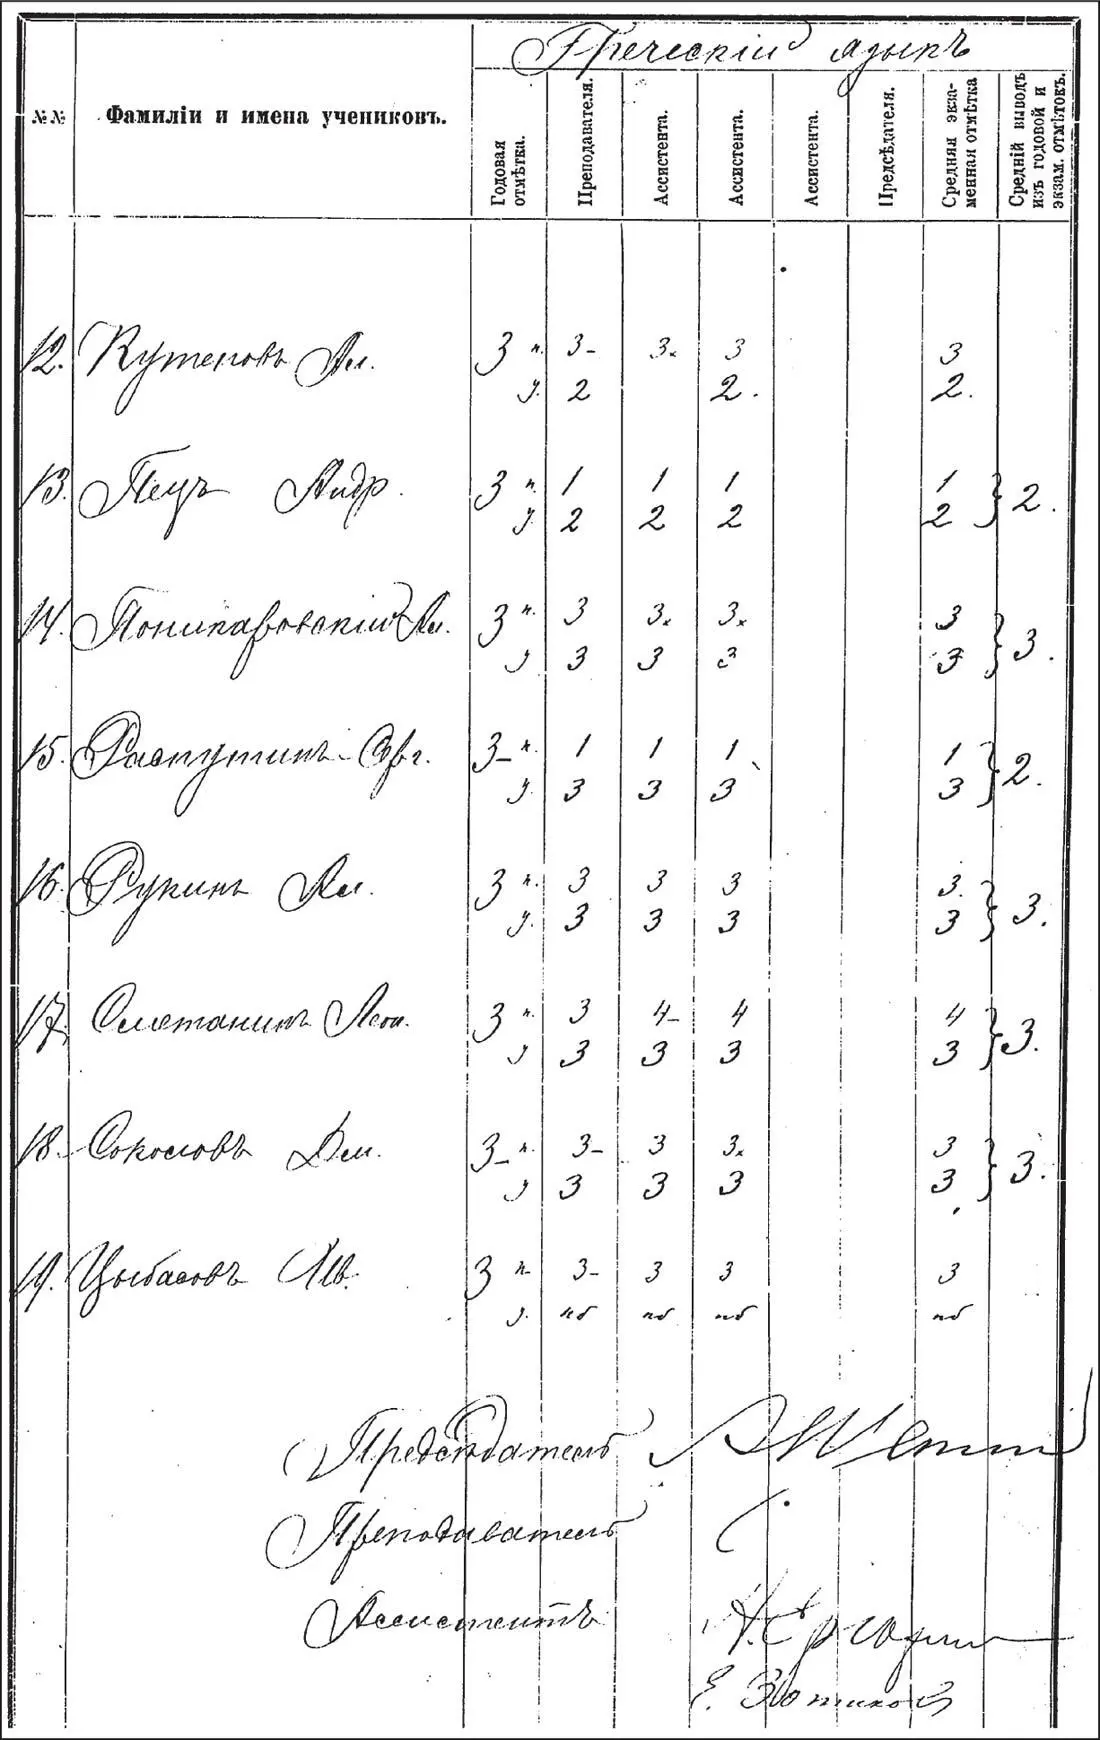 Греческій языкъ
№№ Фамиліи и имена учениковъ. Годовая отмѣтка. Преподавателя. Ассистента. Ассистента. Ассистента. Предсѣдателя. Средняя экза-менная отмѣтка Средній выводъ изъ годовой и экзам. отмѣтокъ.
12. Кутеповъ Ал. 3 п. 3- 3х 3 3
у. 2 2. 2.
13. Пецъ Андр. 3 п. 1 1 1 1 } 2.
у. 2 2 2 2
14. Поникаровскій Ал. 3 п. 3 3х 3х 3 } 3.
у 3 3 3 3
15. Распутинъ Серг. 3- п. 1 1 1 1 } 2.
у. 3 3 3 3
16. Рукинъ Ал. 3 п. 3 3 3 3. } 3.
у. 3 3 3 3
17. Сметанинъ Леон. 3 п. 3 4- 4 4 } 3.
у 3 3 3 3
18. Соколовъ Дм. 3- п. 3- 3 3х 3 } 3.
у 3 3 3 3
19. Цыбасовъ Ив. 3 п. 3- 3 3 3
у. нб нб нб нб
Предсѣдатель
Преподаватель
Ассистентъ
Е.